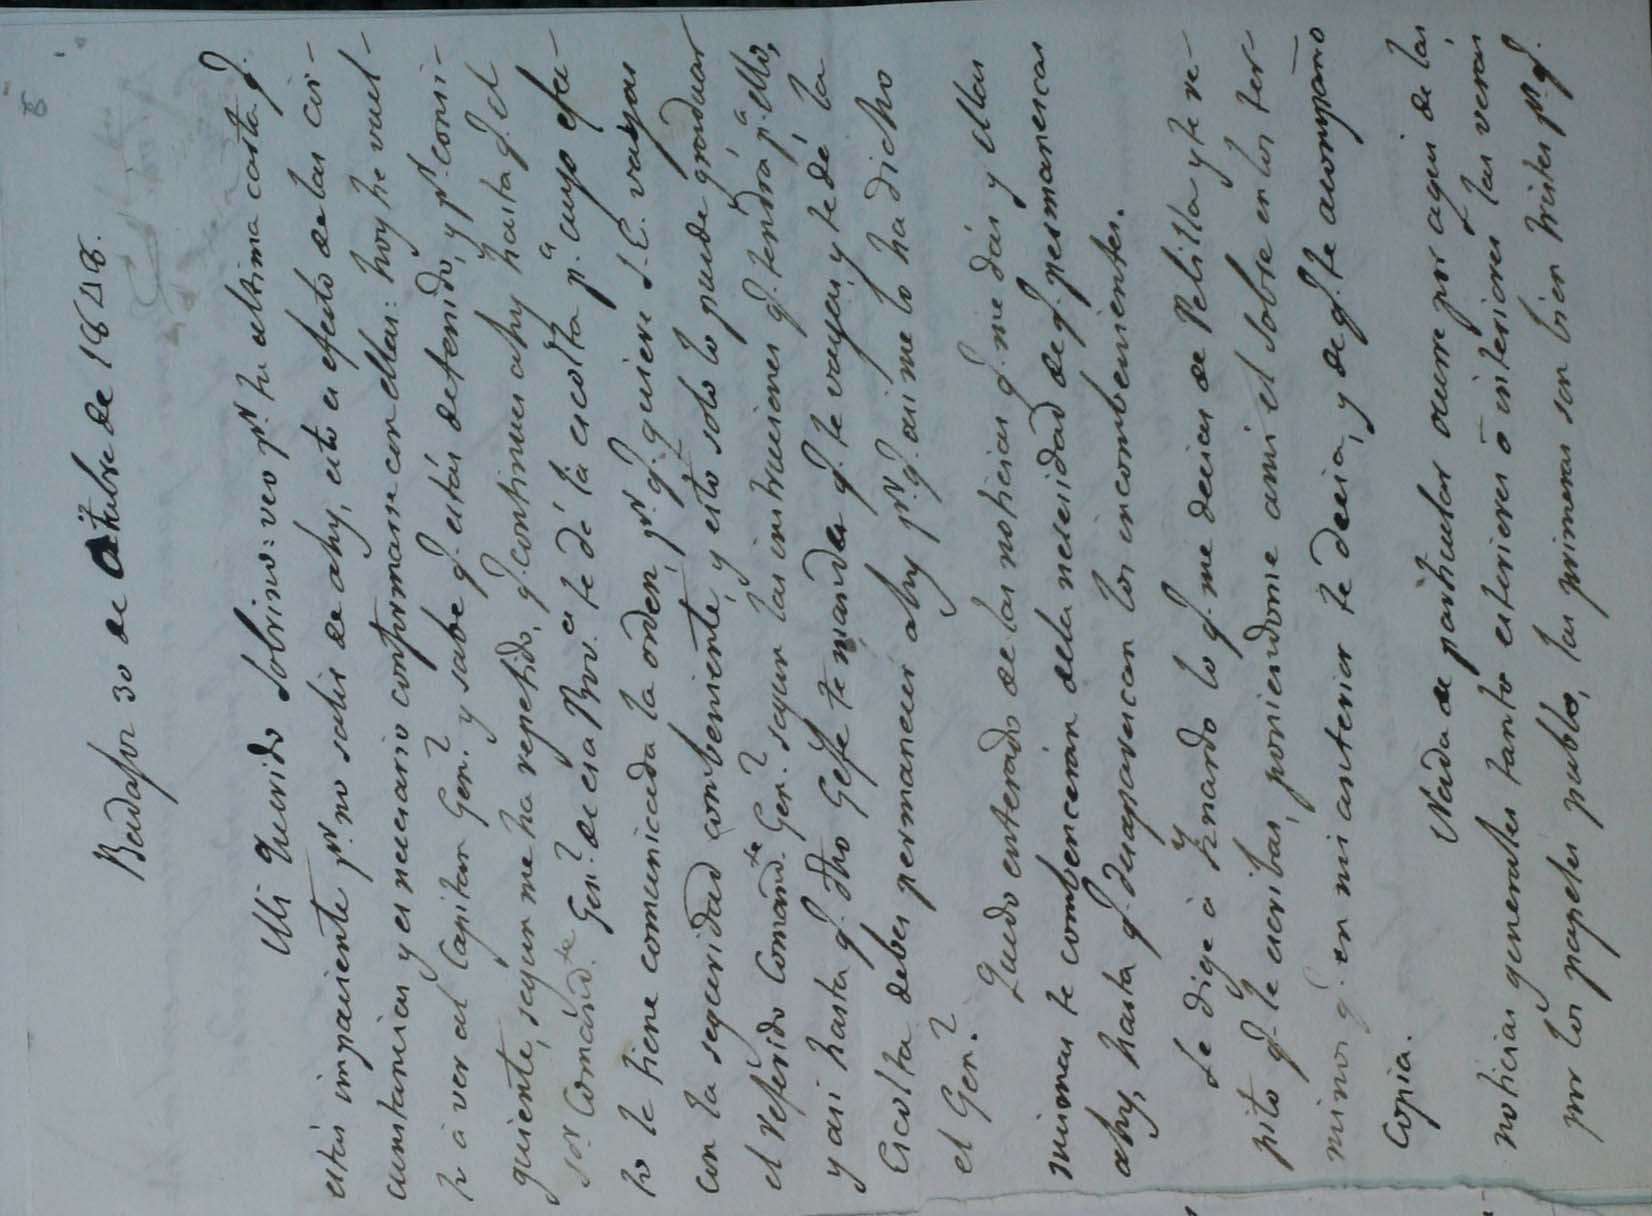 Badajoz 30 de Octubre de 1848.
Mi Querido Sobrino: veo pr. tu ultima carta q.
estás impaciente pr. no salir de ahy, esto es efecto de las cir-
cunstancias y es necesario conformarse con ellas: hoy he vuel-
to à ver al Capitan Genl. y sabe q. estás detenido, y pr. consi-
guiente, segun me ha repetido, q. continues ahy hasta q. el
Sor. Comandte. Genl. de esa Prova. te dé la escolta pa. cuyo efec-
to le tiene comunicada la orden, pr. q. quiere S. E. vayas
con la seguridad combeniente, y esto solo lo puede graduar
el referido Comandte. Genl. segun las instrucciones q. tendrá pa. ello,
y asi hasta q. dho Gefe te mande q. te vayas, y te dé la
Escolta debes permanecer ahy pr. q. asi me lo ha dicho
el Genl.
Quedo enterado de las noticias q. me dás y ellas
mismas te combencerán de la necesidad de q. permanezcas
ahy, hasta q. desaparezcan los incombenientes.
Le dige à Hernardo lo q. me decias de Pelilla y te re-
pito q. le escribas, poniendome a mi el sobre en los ter-
minos q. en mi anterior te decia, y de q. te acompaño
Copia.
Nada de particular ocurre por aqui de las
noticias generales tanto esteriores ó interiores las verás
por los papeles publcos, las primeras son bien tristes pr. q.